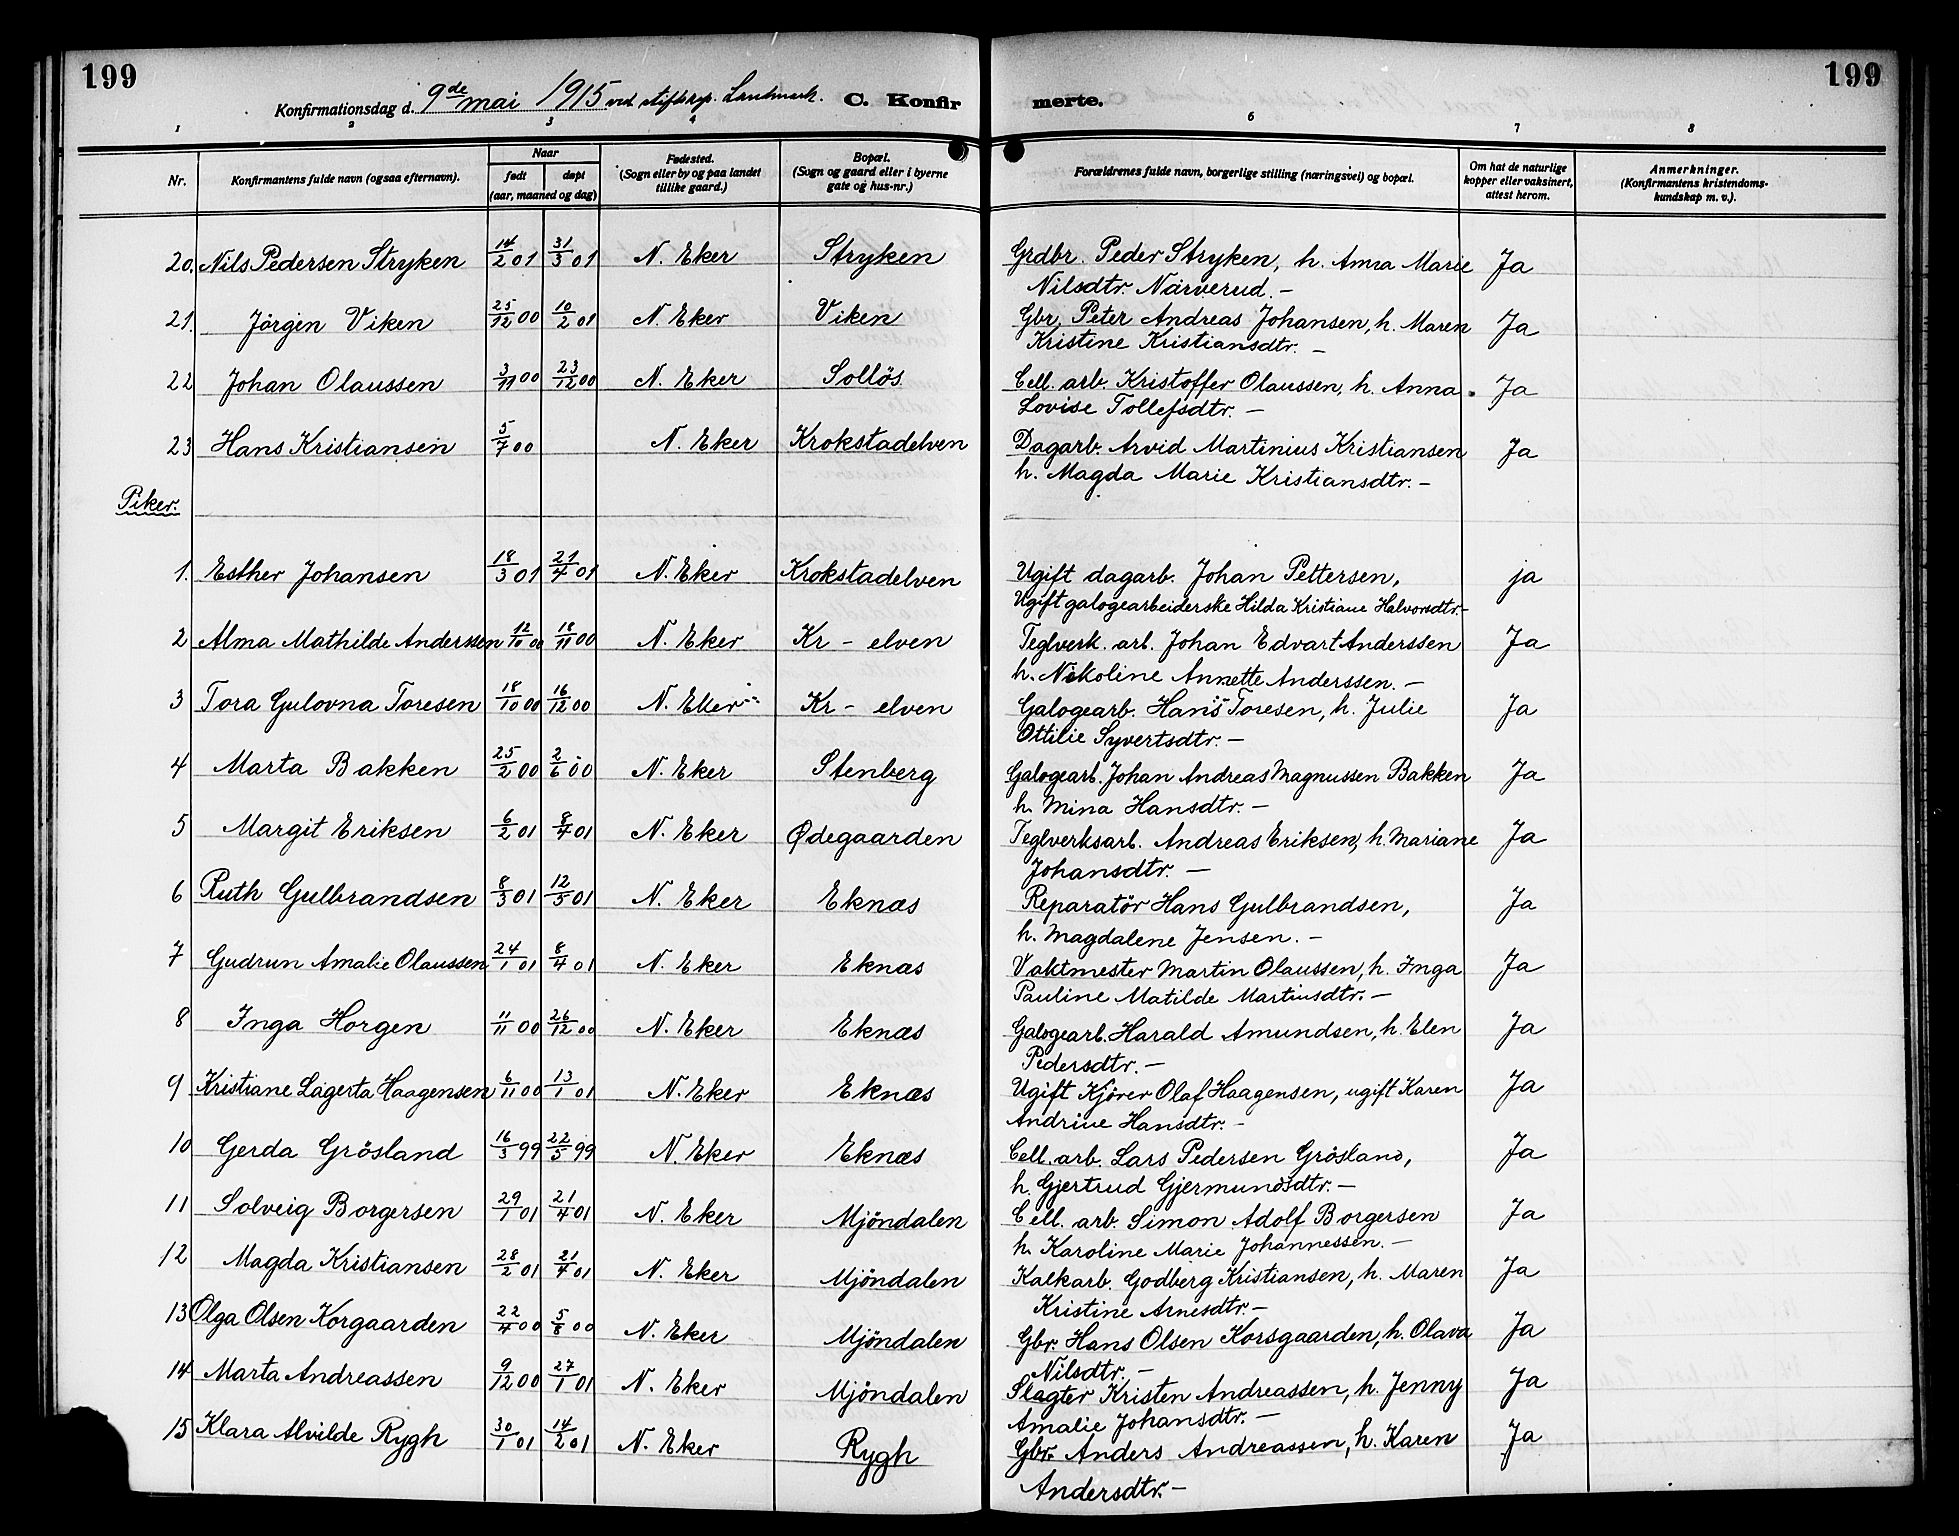 199
199
Konfirmationsdag d. 9de mai 1915 ved stiftskap. Landmark. C. Konfirmerte.
1 2 3 4 6 7 8
Nr. Konfirmantens fulde navn (ogsaa efternavn). Naar født døpt (aar, maaned og dag) Fødested. (Sogn eller by og paa landet tillike gaard.) Bopæl. (Sogn og gaard eller i byerne gate og hus-nr.) Forældrenes fulde navn, borgerlige stilling (næringsvei) og bopæl. Om hat de naturlige kopper eller vaksinert, attest herom. Anmerkninger. (Konfirmantens kristendomskundskap m. v.).
20. Nils Pedersen Stryken 14/2 01 31/3 01 N. Eker Stryken Grdbr. Peder Stryken, h. Anna Marie Ja
Nilsdtr. Närverud. –
21. Jörgen Viken 25/12 00 10/2 01 N. Eker Viken Gbr. Peter Andreas Johansen, h. Maren Ja
Kristine Kristiansdtr. –
22 Johan Olaussen 3/11 00 23/12 00 N. Eker Sollös Cell. arb. Kristoffer Olaussen, h. Anna Ja
Lovise Tollefsdtr. –
23 Hans Kristiansen 5/7 00 N. Eker Krokstadelven Dagarb. Arvid Martinius Kristiansen Ja
h. Magda Marie Kristiansdtr. –
Piker.
1. Esther Johansen 18/3 01 21/4 01 N. Eker Krokstadelven Ugift dagarb. Johan Pettersen, ja
Ugift galogearbeiderske Hilda Kristiane Halvorsdtr. –
2 Alma Mathilde Anderssen 12/10 00 18/11 00 N. Eker Kr – elven Teglverk. arb. Johan Edvart Anderssen Ja
h. Nikoline Annette Anderssen. –
3 Tora Gulovna Toresen 18/10 00 16/12 00 N. Eker Kr – elven Galogearb. Hans Toresen, h. Julie Ja
Ottilie Syvertsdtr. –
4 Marta Bakken 25/2 00 2/6 00 N. Eker Stenberg Galogearb. Johan Andreas Magnussen Bakken Ja
h. Mina Hansdtr. –
5 Margit Eriksen 6/2 01 8/4 01 N. Eker Ødegaarden Teglverksarb. Andreas Eriksen, h. Mariane Ja
Johansdtr. –
6 Ruth Gulbrandsen 8/3 01 12/5 01 N. Eker Eknæs Reparatör Hans Gulbrandsen, Ja
h. Magdalene Jensen. –
7 Gudrun Amalie Olaussen 24/1 01 8/4 01 N. Eker Eknæs Vaktmester Martin Olaussen, h. Inga Ja
Pauline Matilde Martinsdtr. –
8 Inga Horgen 11/11 00 26/12 00 N. Eker Eknæs Galogearb. Harald Amundsen, h. Elen Ja
Pedersdtr. –
9 Kristiane Lagerta Haagensen 6/11 00 13/1 01 N. Eker Eknæs Ugift Kjörer Olaf Haagensen, ugift Karen Ja
Andrine Hansdtr. –
10 Gerda Grösland 16/3 99 22/5 99 N. Eker Eknæs Cell. arb. Lars Pedersen Grösland, Ja
h. Gjertrud Gjermundsdtr. –
11 Solveig Borgersen 29/1 01 21/4 01 N. Eker Mjöndalen Cell. arb. Simon Adolf Borgersen Ja
h. Karoline Marie Johannessen. –
12 Magda Kristiansen 28/2 01 21/4 01 N. Eker Mjöndalen Kalkarb. Godberg Kristiansen, h. Maren Ja
Kristine Arnesdtr. –
13 Olga Olsen Korgaarden 22/4 00 5/8 00 N. Eker Mjöndalen Gbr. Hans Olsen Korsgaarden, h. Olava Ja
Nilsdtr. –
14 Marta Andreassen 9/12 00 27/1 01 N. Eker Mjöndalen Slagter Kristen Andreassen, h. Jenny Ja
Amalie Johansdtr. –
15 Klara Alvilde Rygh 30/1 01 14/2 01 N. Eker Rygh Gbr. Anders Andreassen, h. Karen Ja
Andersdtr. –